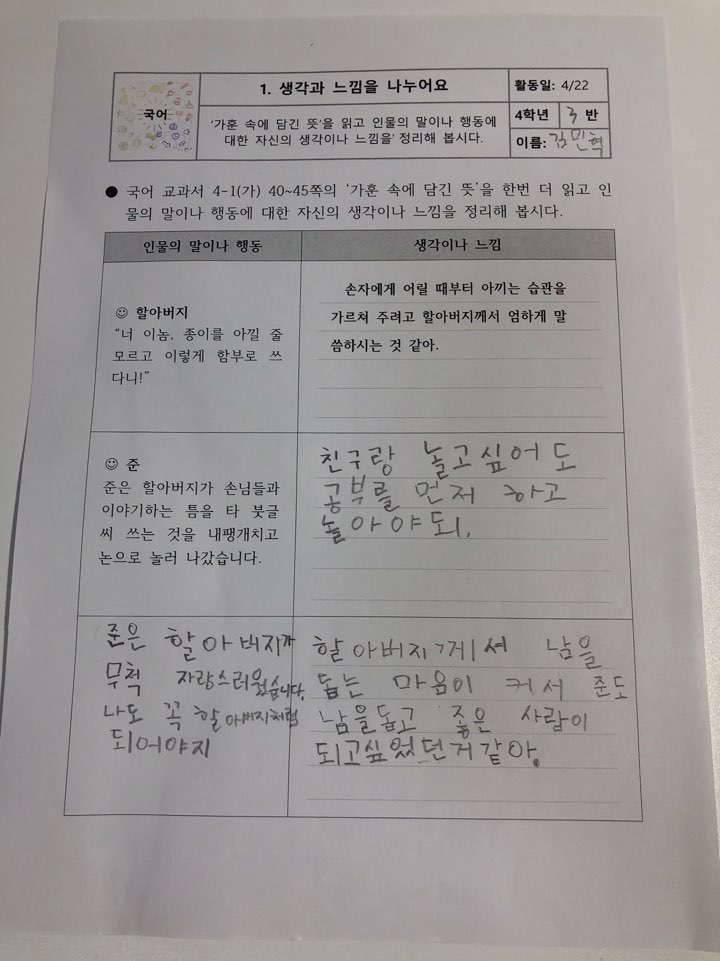 국어
1. 생각과 느낌을 나누어요
'가훈 속에 담긴 뜻'을 읽고 인물의 말이나 행동에
대한 자신의 생각이나 느낌을' 정리해 봅시다.
활동일: 4/22
4학년 3 반
이름: 김민혁
● 국어 교과서 4-1(가) 40~45쪽의 '가훈 속에 담긴 뜻'을 한번 더 읽고 인
물의 말이나 행동에 대한 자신의 생각이나 느낌을 정리해 봅시다.
인물의 말이나 행동
생각이나 느낌
☺ 할아버지
"너 이놈, 종이를 아낄 줄
모르고 이렇게 함부로 쓰
다니!"
손자에게 어릴 때부터 아끼는 습관을
가르쳐 주려고 할아버지께서 엄하게 말
씀하시는 것 같아.
☺ 준
준은 할아버지가 손님들과
이야기하는 틈을 타 붓글
씨 쓰는 것을 내팽개치고
논으로 놀러 나갔습니다.
친구랑 놀고싶어도
공부를 먼저 하고
놀아야되.
준은 할아버지가
무척 자랑스러웠습니다.
나도 꼭 할아버지처럼
되어야지
할아버지께서 남을
돕는 마음이 커서 준도
남을돕고 좋은 사람이
되고싶었던거같아.